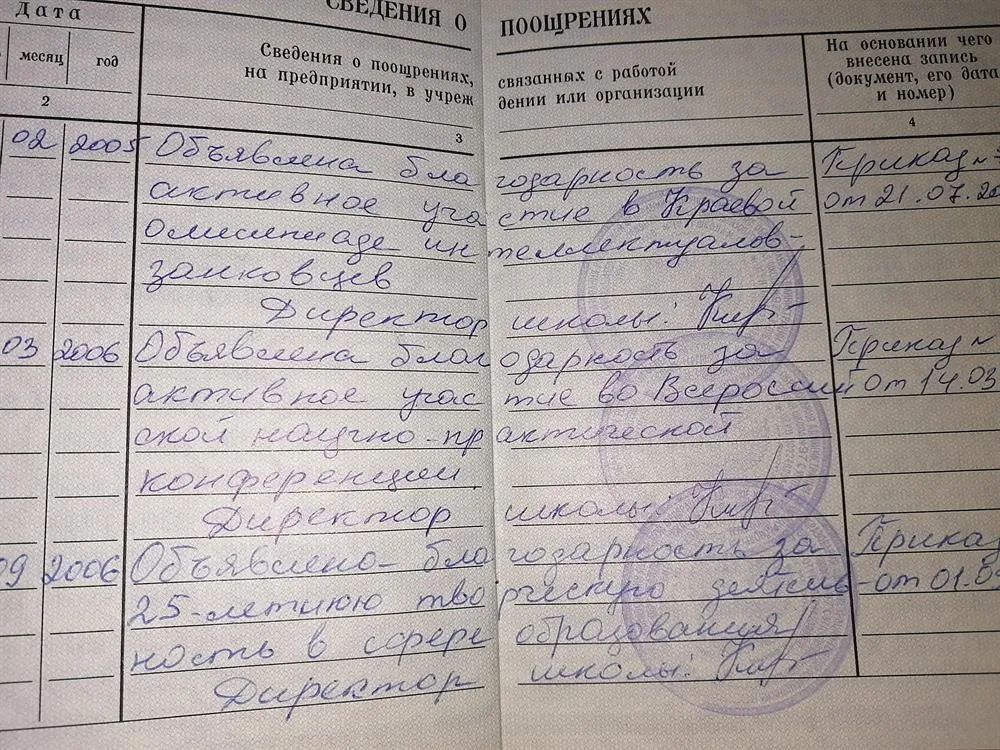 СВЕДЕНИЯ О ПООЩРЕНИЯХ
Дата
месяц год
Сведения о поощрениях, связанных с работой
на предприятии, в учреждении или организации
На основании чего
внесена запись
(документ, его дата
и номер)
2 3 4
02 2005 Объявлена благодарность за Приказ №
активное участие в Краевой от 21.07.20
олимпиаде интеллектуалов-
заиковцев
Директор школы:
03 2006 Объявлена благодарность за Приказ №
активное участие во Всероссий от 14.03
ской научно-практической
конференции
Директор школы:
09 2006 Объявлено благодарность за Приказ
25-летнюю творческую деятель- от 01.0
ность в сфере образования
Директор школы: